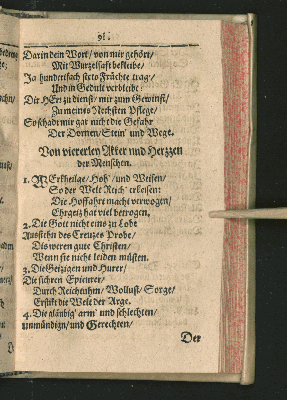 91.
Darin dein Wort/ von mir gehört/
Mit Wurzelsaft bekleibe/
Ja hundertfach stets Früchte trag/
Und in Gedult verbleibe!
Dir HErr zu dienst/ mir zum Gewinst/
Zu meines Nechsten Pflege/
So schadt mir gar nicht die Gefahr
Der Dornen/ Stein' und Wege.
Von viererley Akker und Hertzzen
der Menschen.
1. WErkheilge/ Hoh' /und Weisen/
So der Welt Reich' erkiesen:
Die Hoffahrt macht verwogen/
Ehrgeiz hat viel betrogen.
2. Die Gott nicht eins zu Lobe
Ausstehn des Creuzes Probe/
Dis weren gute Christen/
Wenn sie nicht leiden müsten.
3. Die Geizigen und Hurer/
Die sichren Epicurer/
Durch Reichtuhm/ Wollust/ Sorge/
Erstikt die Welt der Arge.
4. Die gläubig' arm' und schlechten/
unmündign/ und Gerechten/
Der